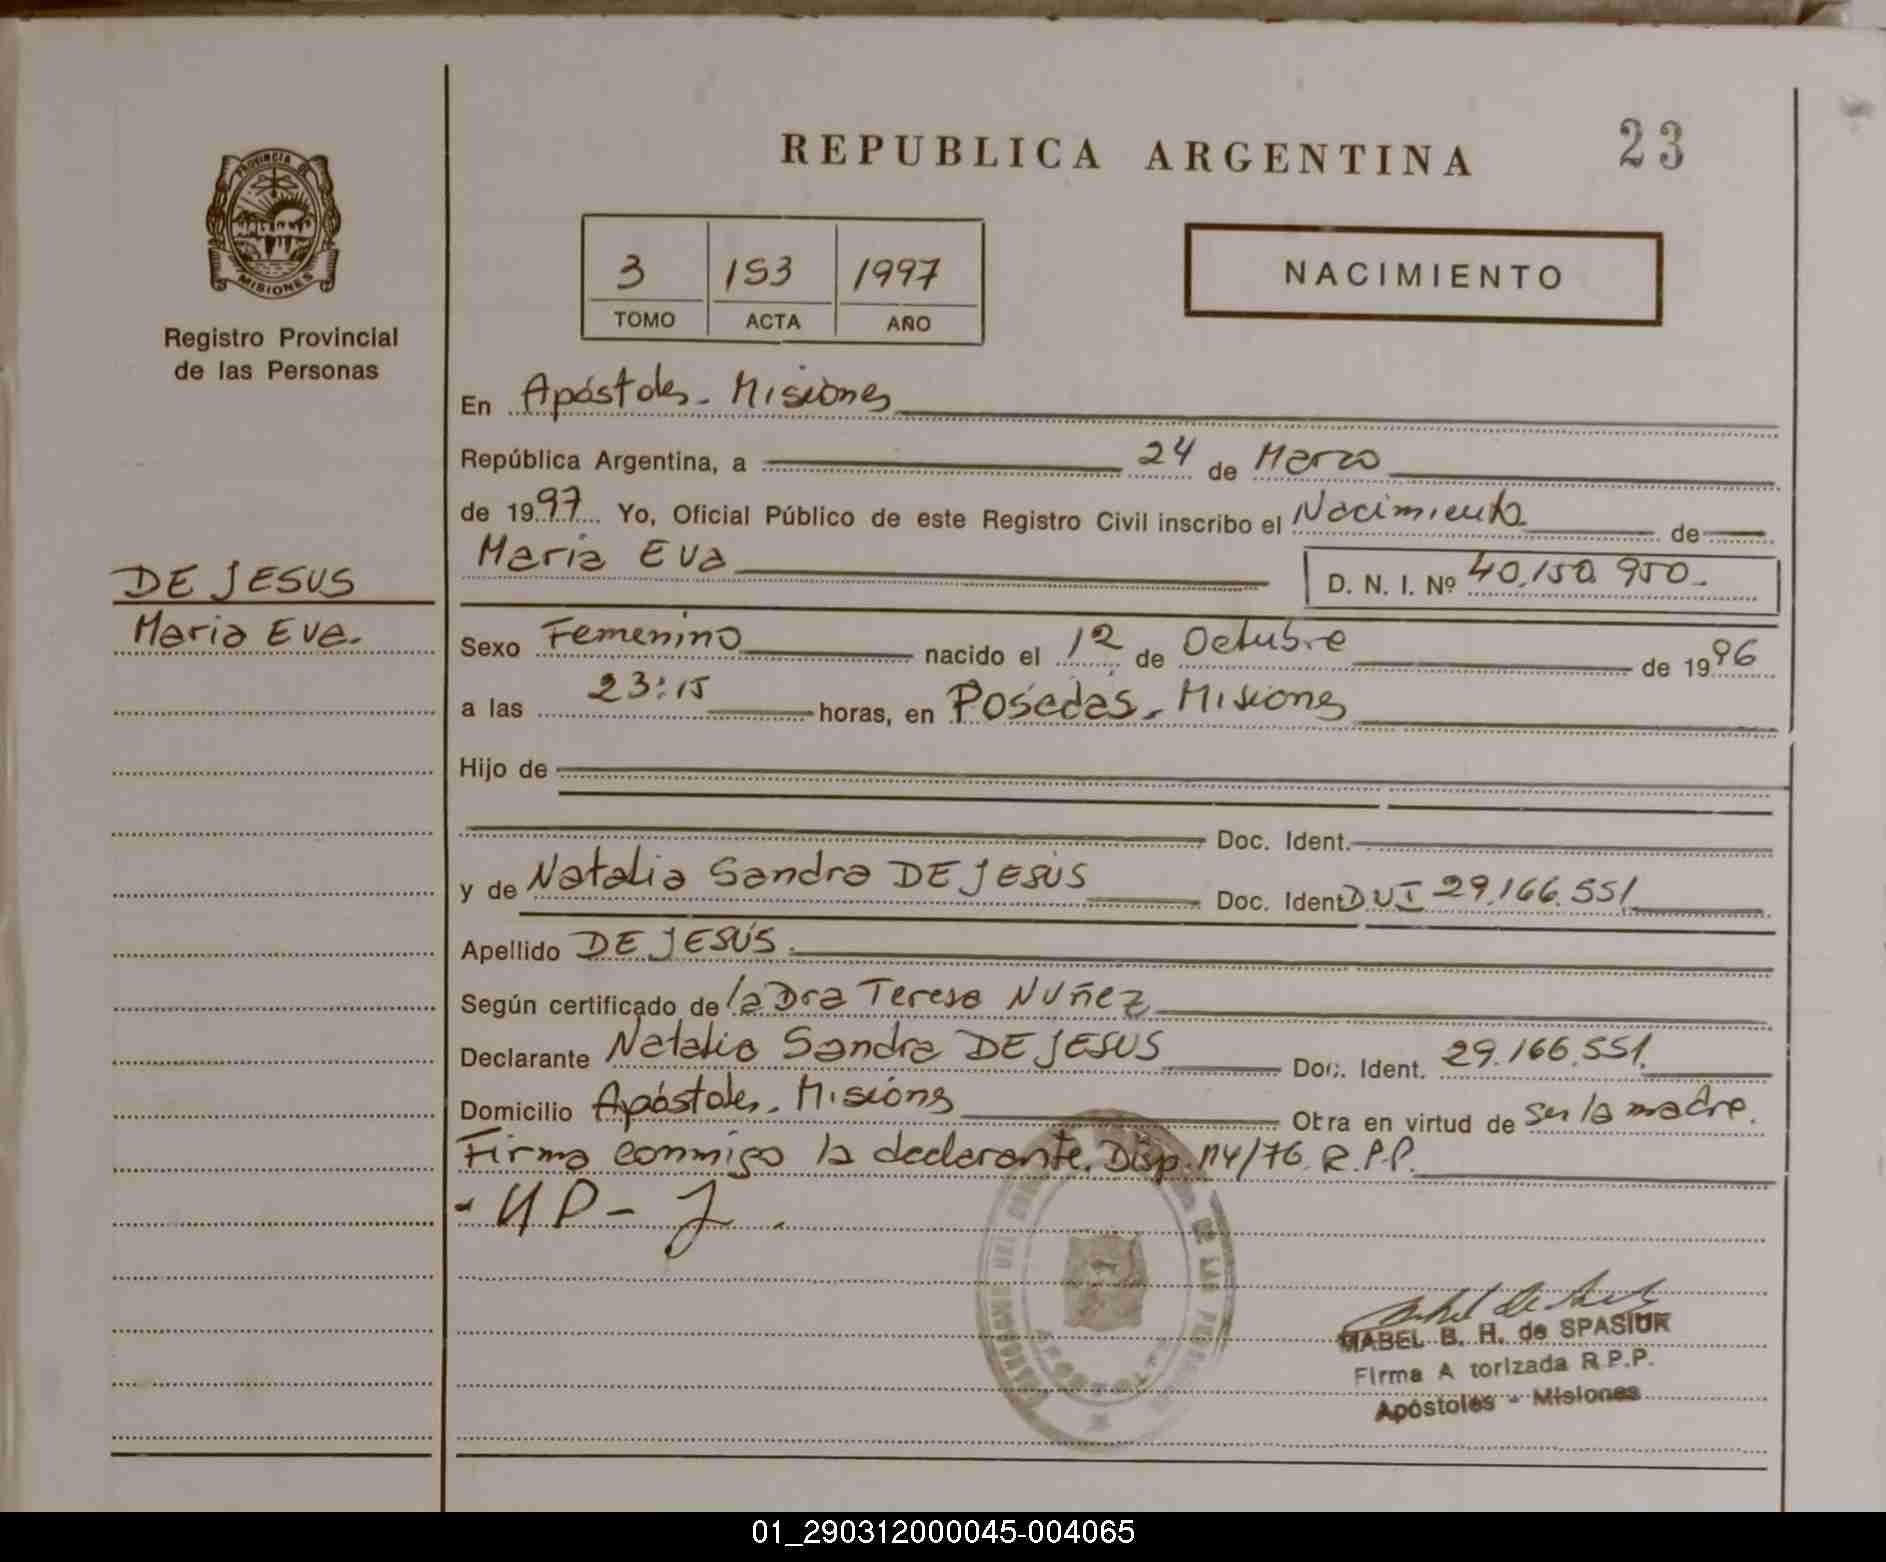 REPUBLICA ARGENTINA
23
PROVINCIA DE
MISIONES
Registro Provincial
de las Personas
3 153 1997
TOMO ACTA AÑO
NACIMIENTO
En Apóstoles - Misiones
República Argentina, a 24 de Marzo
de 1997 Yo, Oficial Público de este Registro Civil inscribo el Nacimiento de
Maria Eva D. N. I. Nº 40.150.950.
DE JESUS
Maria Eva.
Sexo Femenino nacido el 12 de Octubre de 1996
a las 23:15 horas, en Posadas - Misiones
Hijo de
Doc. Ident.
y de Natalia Sandra DE JESUS Doc. Ident DUI 29.166.551
Apellido DE JESUS.
Según certificado de la Dra Teresa Nuñez
Declarante Natalia Sandra DE JESUS Doc. Ident. 29.166.551.
Domicilio Apóstoles - Misiones Obra en virtud de ser la madre.
Firma conmigo la declarante. Disp. 114/76. R.P.P.
MABEL B. H. de SPASIUK
Firma A torizada R.P.P.
Apóstoles - Misiones
01_290312000045-004065